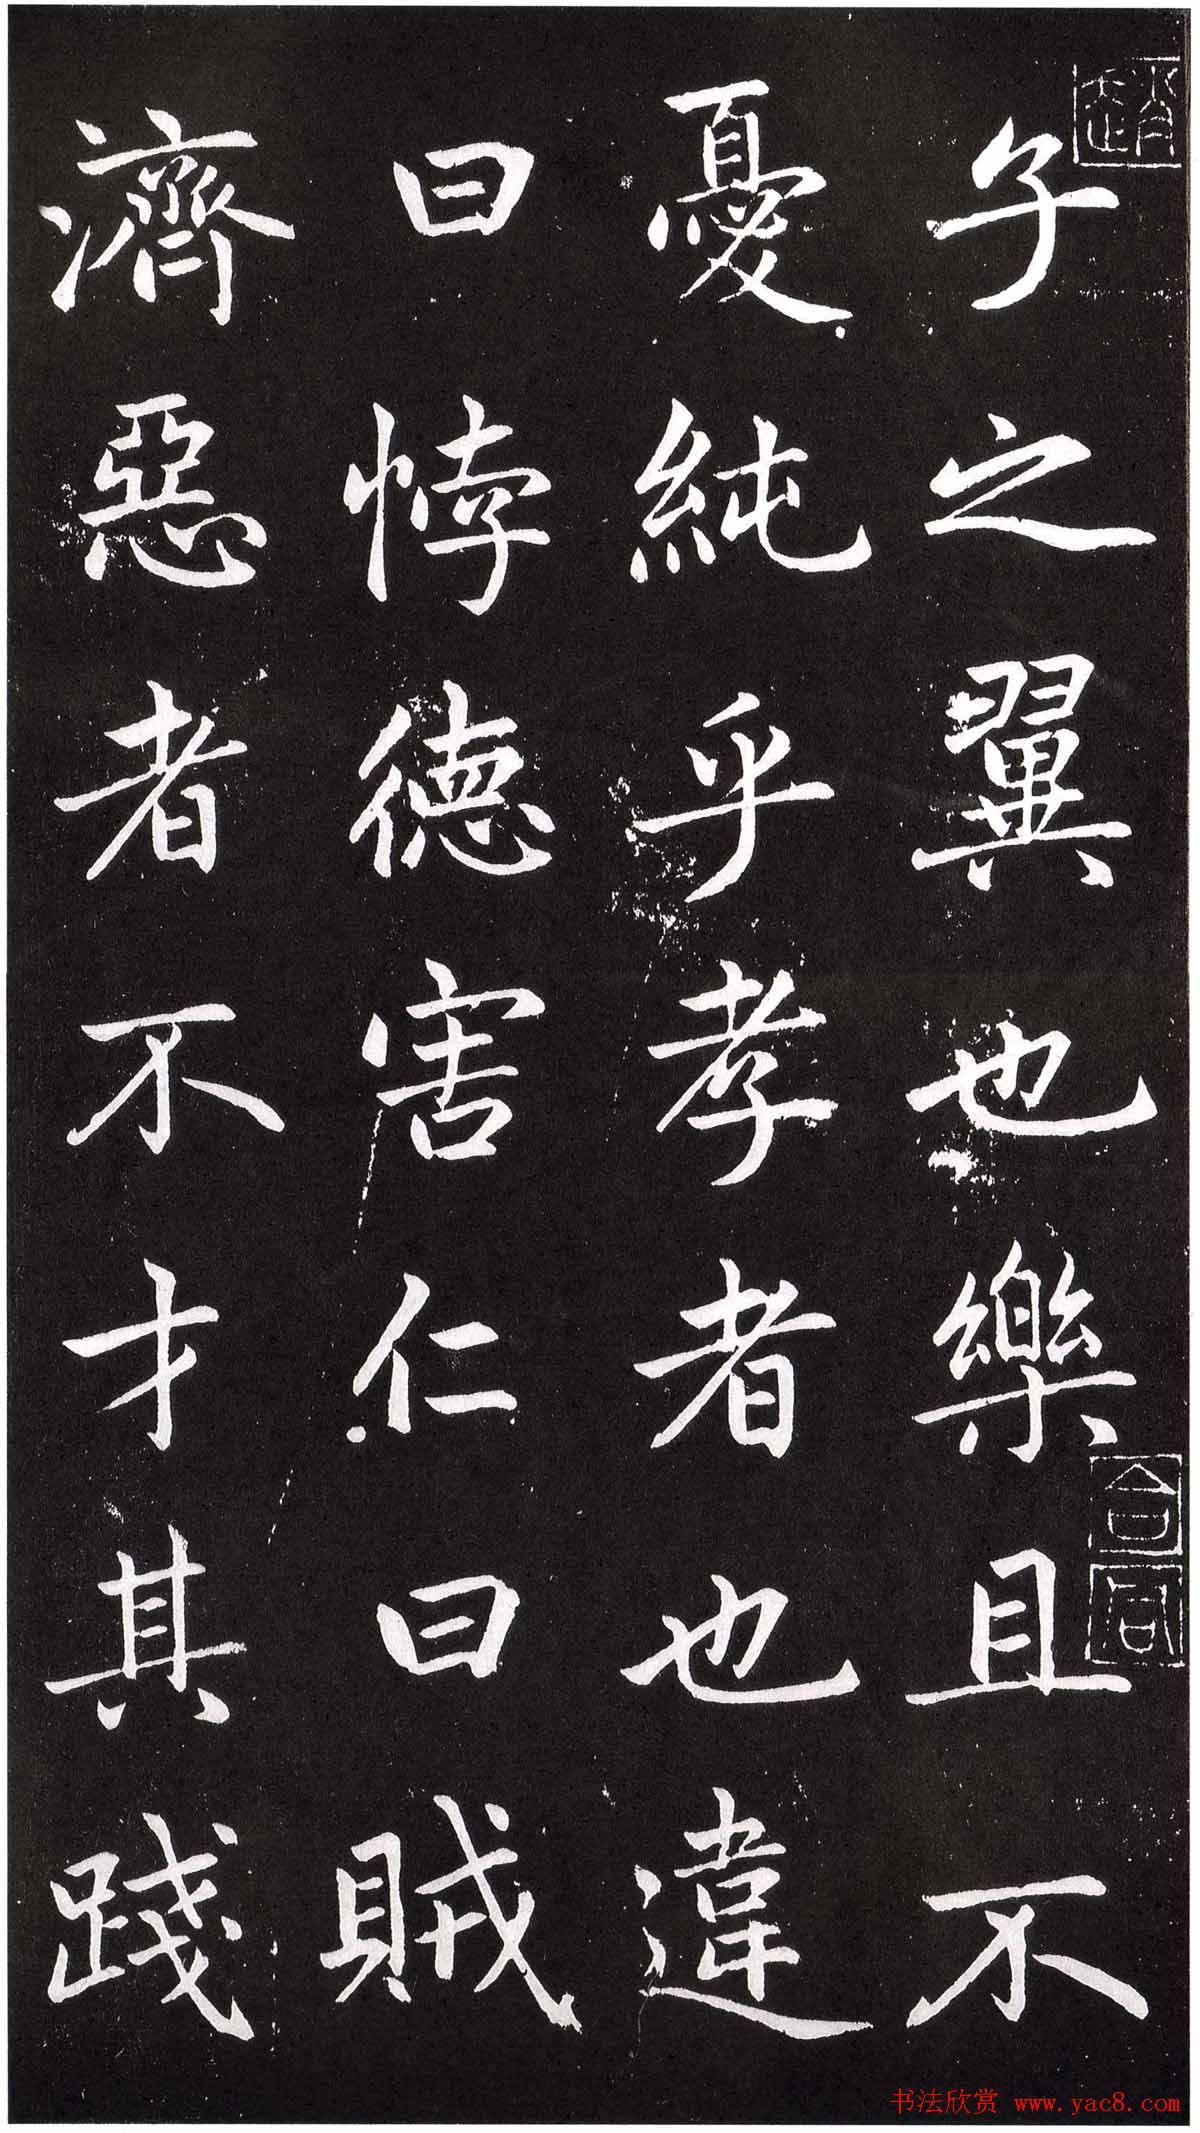 子之翼也樂且不
憂純乎孝者也違
曰悖德害仁曰賊
濟惡者不才其踐
合同
书法欣赏 www.yac8.com